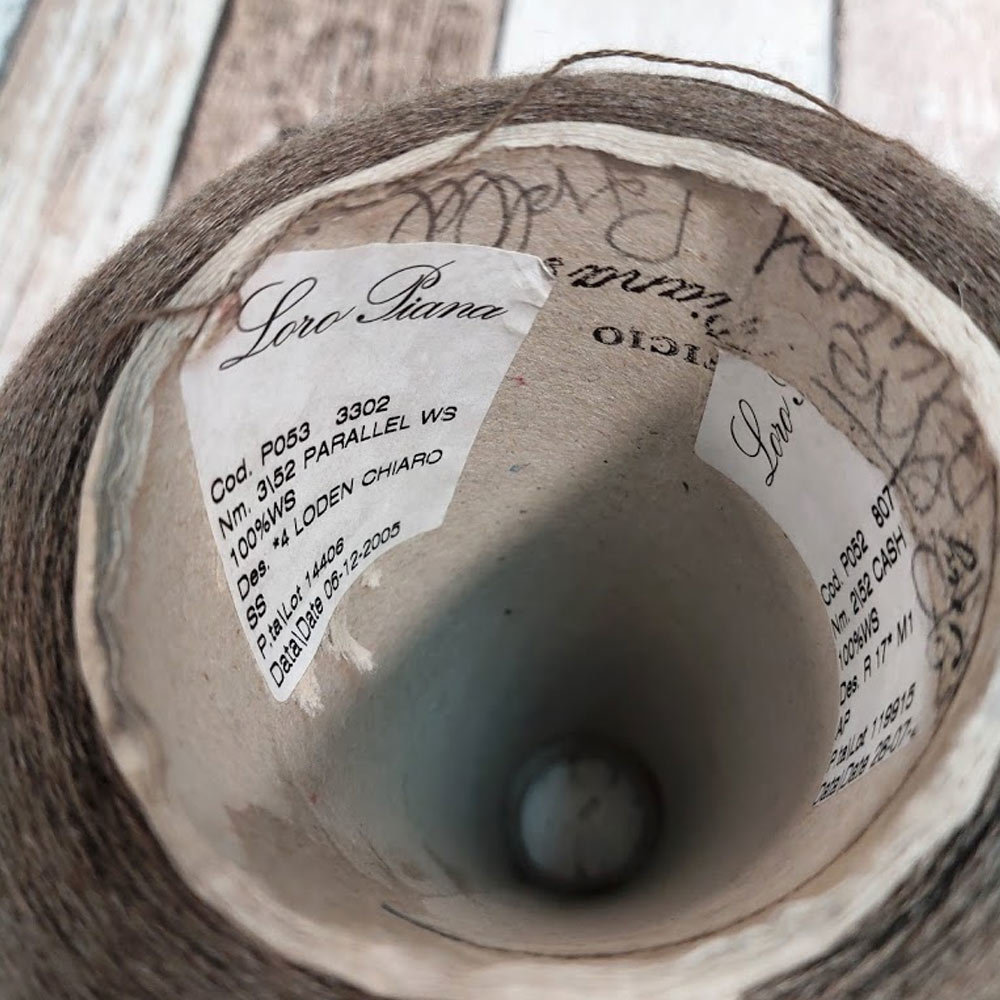 Loro Piana
Cod. P053 3302
Nm. 3\52 PARALLEL WS
100%WS
Des. *4 LODEN CHIARO
SS
P.ta\Lot 14406
Data\Date 06-12-2005
Parallel
Loro
Cod. P052 807
Nm. 2\52 CASH
100%WS
Des. R 17* M1
AP
P.ta\Lot 119915
Data\Date 28-07-